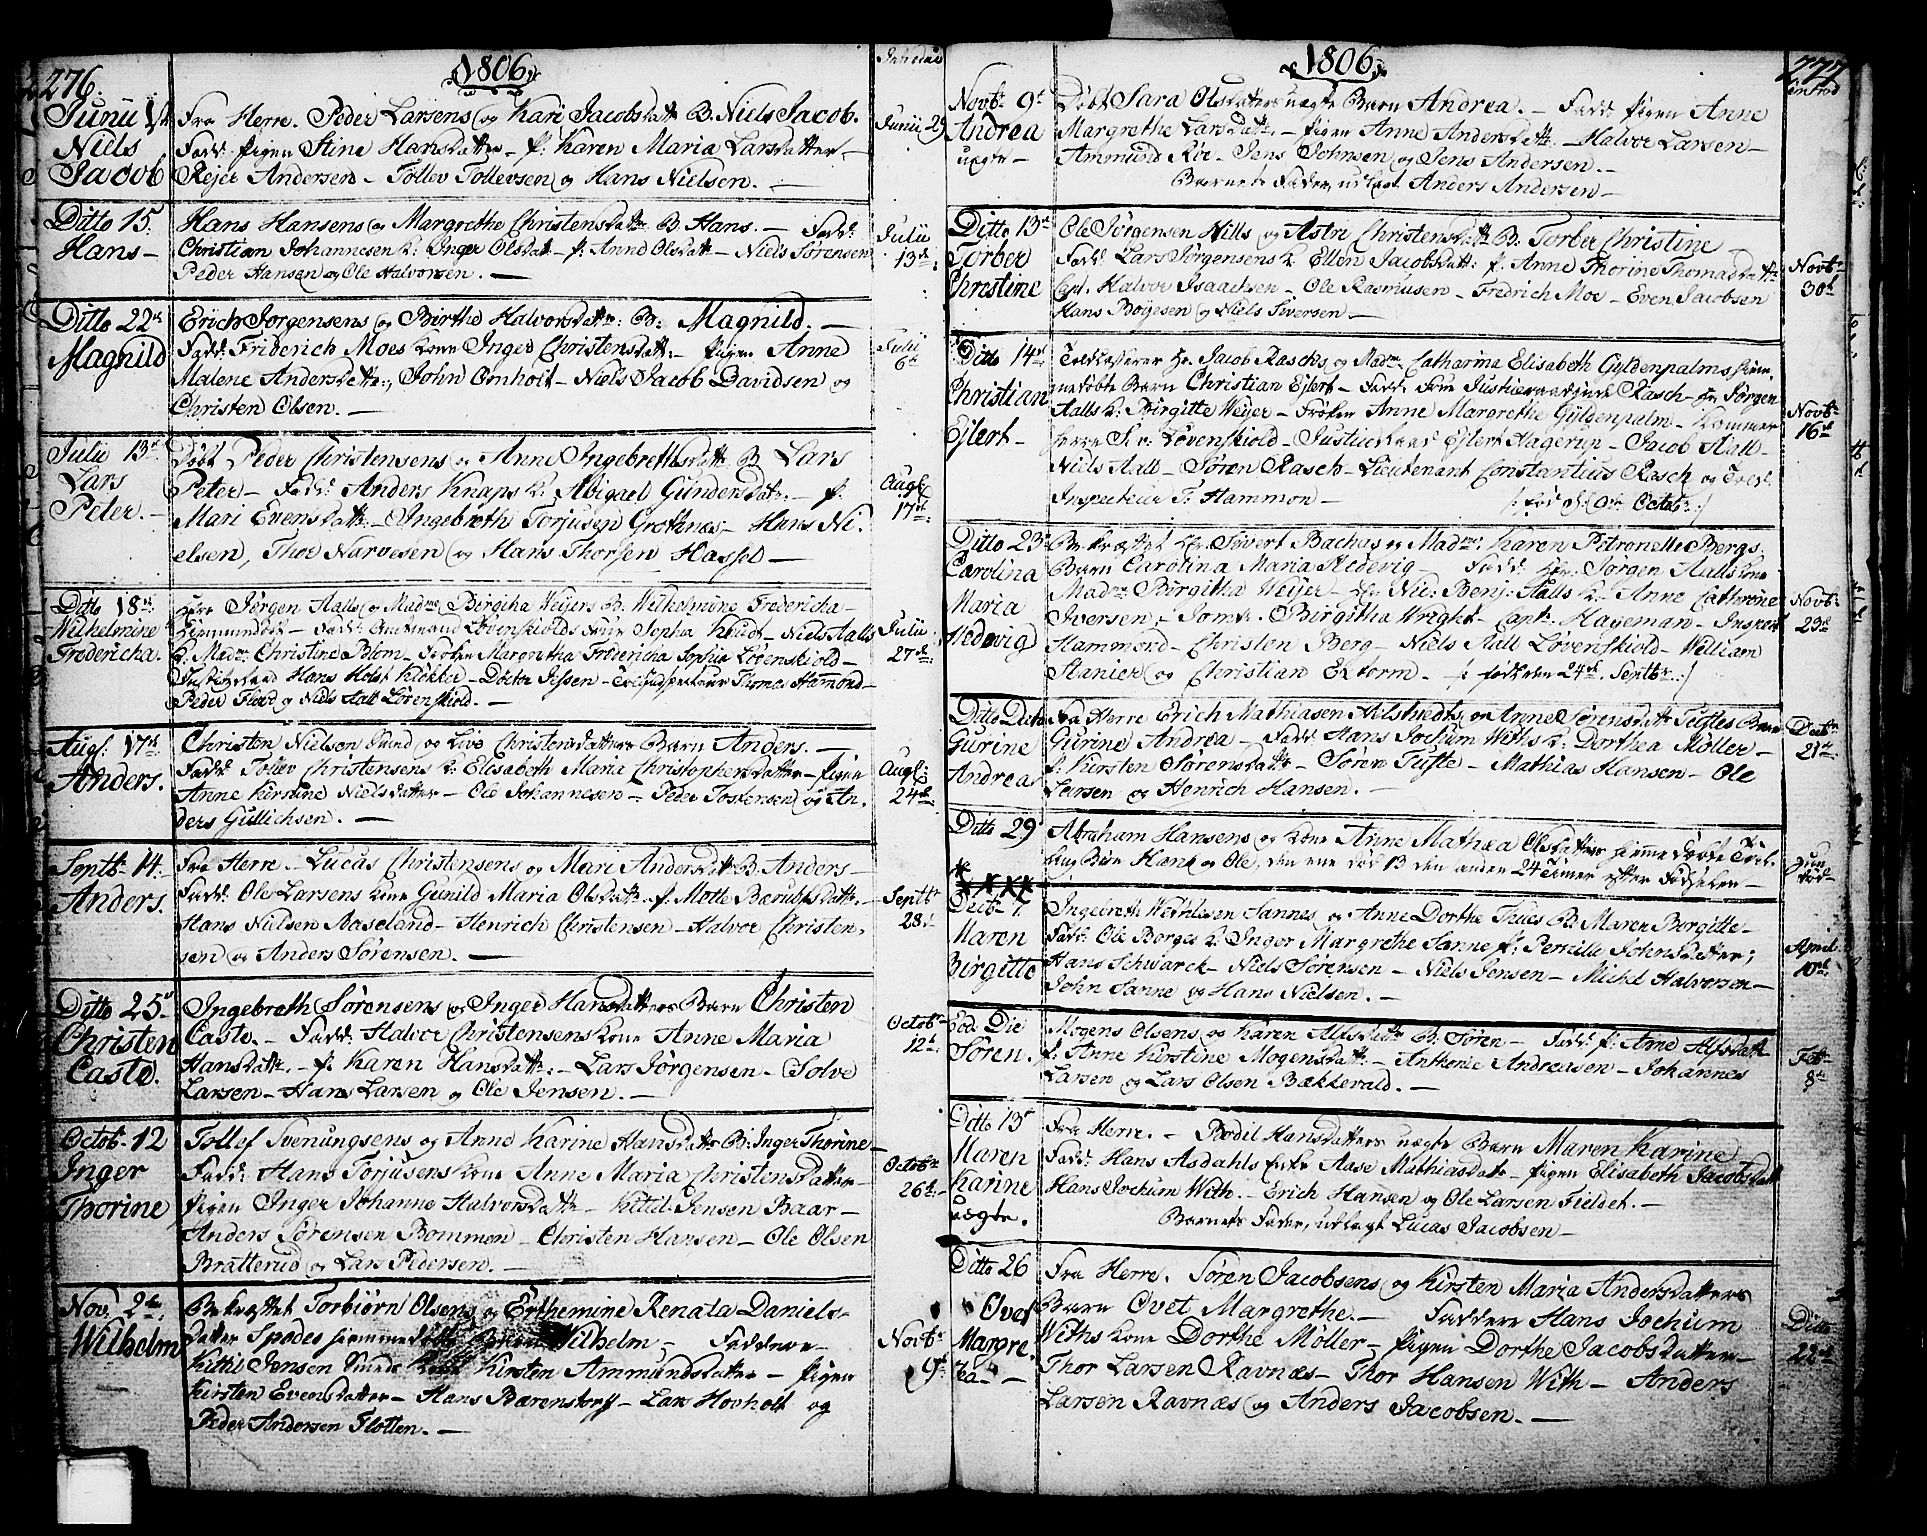 276.
1806
Introduc
Junii 1st
Niels
Jacob
Fra Herre. Peder Larsens og Kari Jacobsdatt B. Niels Jacob.
Fadd: Pigen Stine Hansdatter – P: Karen Maria Larsdatter –
Rejer Andersen – Tollev Tollevsen og Hans Nielsen. —
Junii 29
Ditto 15.
Hans –
Hans Hansens og Margrethe Christensdattr B. Hans. — Fadd:
Christian Johannesen k: Inger Olsdatt – P: Anne Olsdatt – Niels Sørensen
Peder Hansen og Ole Halvorsen. —
Julii
13de
Ditto 22de
Magnild
Erich Jørgensens og Birthe Halvorsdattr: B: Magnild. —
Fadd: Friderich Moes kone Inger Christensdatt: – Pigen Anne
Malene Andersdattr:, John Omholt – Niels Jacob Davidsen og
Christen Olsen. —
Julii
6te
Julii 13de
Lars
Peter. –
Døbt Peder Christensens og Anne Ingebrethsdatt B Lars
Peter – Fadd: Anders Knaps k: Abigael Gundersdatt: – P:
Mari Evensdatt: – Ingebreth Torjusen Grotnæs – Hans Ni-
elsen, Thor Narvesen og Hans Thorsen Hassel —
Augt
17de:
Ditto 18de
Wilhelmine
Fredericha.
Herr Jørgen Aalls og Madme Birgitha Weyers B. Wilhelmine Fredericha –
hjemmedøbt – Fadd: Amtmand Løvenskiolds Frue Sopha Knudt – Niels Aalls
k: Madme: Christine Blom – Frøken Margretha Fredericha Sophia Løvenskiold –
Justitsraad Hans Holst Kløkker – Doctor Jessen – Toldinspecteur Thomas Hammond –
Peder Flood og Niels Aall Løvenskiold. —
Julii
27de:
Augt: 17de
Anders.
Christen Nielsen Sund og Live Christensdatters Barn Anders. —
Fadd: Tollev Christensens k: Elisabeth Maria Christophersdatter – Pigen
Anne Kirstine Nielsdatter – Ole Johannesen – Peder Torstensen og An-
ders Gullichsen. —
Augt:
24de:
Septbr 14.
Anders.
Fra Herre – Lucas Christensens og Mari Andersdatt B: Anders –
Fadd: Ole Larsens kone Gunild Maria Olsdatt – P: Mette Berulfsdatt. –
Hans Nielsen Aaseland – Henrich Christensen – Halvor Christen-
sen og Anders Sørensen. —
Septbr
28.
Ditto 25de
Christen
Casto.
Ingebreth Sørensens og Inger Hansdatters Barn Christen
Casto. – Fadd: Halvor Christensens kone Anne Maria
Hansdatt. – P: Karen Hansdatt: – Lars Jørgensen – Solve
Larsen – Hans Larsen og Ole Jensen. —
Octobr
12te:
Octob. 12
Inger
Thorine
Tollef Svenungsens og Anne Karine Hansdattr B: Inger Thorine –
Fadd: Hans Torjusens kone Anne Maria Christensdatter –
Pigen Inger Johanne Halvorsdatt – Kittil Jensen Baar –
Anders Sørensen Bommen – Christen Hansen – Ole Olsen
Bratterud og Lars Pedersen. —
Octobr
26de.
Nov. 2de
Wilhelm
Bekræftet Torbiørn Olsens og Erthemine Renata Daniels-
datter Spodes hjemmedøbt Barn Wilhelm – Faddere –
Kittil Jensen Kirsten Ammundsdatter – Pigen
Kirsten Evensdatter – Hans Bærenstorff – Lars Hovholt og
Peder Andersen Flotten. —
Novbr
9de
1806
277
Introd
Novbr 9de
Andrea
uægte –
Døbt Sara Olsdatters uægte Barn Andrea. – Fadd: Pigen Anne
Margrethe Larsdatt: – Pigen Anne Andersdatt: – Halvor Larsen –
Ammund Röe – Jens Johnsen og Jens Andersen. —
Barnets Fader, udlagt Anders Andersen —
Ditto 13de
Torber
Christine
Ole Jørgensen Hills og Astri Christensdatt B: Torber Christine –
Fadd: Lars Jørgensens k: Ellen Jacobsdatt: P. Anne Thorine Thomasdatt
Capt. Halvor Isaachsen – Ole Rasmusen – Fredrich Moe – Even Jacobsen
Hans Bøyesen og Niels Siversen. —
Novbr
30te
Ditto 14de
Christian
Ejlert –
Toldcasserer Hr. Jacob Raschs og Madme Catharina Elisabeth Gyldenpalms hjem-
medøbte Barn Christian Ejlert – Fadd: Frue Justitsraadinde Rasch – Hr Jørgen
Aalls k: Birgitte Weyer – Frøken Anne Margrethe Gyldenpalm – Kammer
herre S. v: Løvenskiold – Justitsraad Ejlert Hagerup – Jacob Aall –
Niels Aall – Søren Rasch – Lieutenant Constantius Rasch og Told-
Inspecteur T: Hammon — /: fød d: 9de Octobr :/
Novbr
16de
Ditto 23de
Carolina
Maria
Hedevig
Bekræftet Hr. Sivert Bachas og Madme: Karen Petronelle Bergs
Barn Carolina Maria Hedevig – Fadd: Hr: Jørgen Aalls kone
Madme Birgitha Weyer – Hr: Nic: Benj: Aalls k: Anne Cathrine
Iversen – Jomfr. Birgitha Wright – Capt: Hageman – Inspect
Hammond – Christen Berg – Niels Aall Løvenskiold – William
Stanier og Christian Extorm. – /: født den 24de Septbr. :/
Novbr
23de
Ditto Dito
Gurine
Andrea
Fra Herre Erich Mathiasen Milstvedts og Anne Sørensdatt Tuftes Barn
Gurine Andrea – Fadd: Hans Jochum Withs k: Dorthea Møller –
P: Kirsten Sørensdatt – Søren Tufte – Mathias Hansen – Ole
Larsen og Henrich Hansen. —
Decbr
21de
Ditto 29
Abraham Hansens og kone Anne Mathea Olsdatters hjemmedøbte Tvil-
ling Børn Hans og Ole, den ene død 13 den anden 24 Timer efter Fødselen –
hjem
død –
Decbr 7.
Maren
Birgitte
Ingebreth Wethlesen Sannes og Anne Dorthe Thues B: Maren Borgitte –
Fadd: Ole Borges k: Inger Margrethe Sanne P: Pernille Johnsdatter;
Hans Schwarck – Niels Sørensen – Niels Jensen – Michel Halvorsen –
John Sanne og Hans Nielsen. —
April
10de
Eod: Die
Søren.
Mogens Olsens og Karen Alfsdattr B: Søren – Fadd: P: Anne Alfsdatt
P: Anne Kirstine Mogensdatt: – Anthonie Andreasen – Johannes
Larsen og Lars Olsen Bækkevald. —
Febr
8de
Ditto 13de
Maren
Karine
uægte.
Fra Herre. – Bodil Hansdatters uægte Barn Maren Karine
Fadd: Hans Asdahls Enke Aase Mathiasdatt – Pigen Elisabeth Jacobsdatt
Hans Jochum With. – Erich Hansen og Ole Larsen Fieldet. —
Barnets Fader, udlagt Lucas Jacobsen —
Ditto 26
Ovet
Margre-
tha – –
Fra Herre. Søren Jacobsens og Kirsten Maria Andersdatters
Barn Ovet Margrethe. – Faddere Hans Jochum
Withs kone Dorthe Møller – Pigen Dorthe Jacobsdatter –
Thor Larsen Ravnæs – Thor Hansen With – Anders
Larsen Ravnæs og Anders Jacobsen. —
Ditto
22de